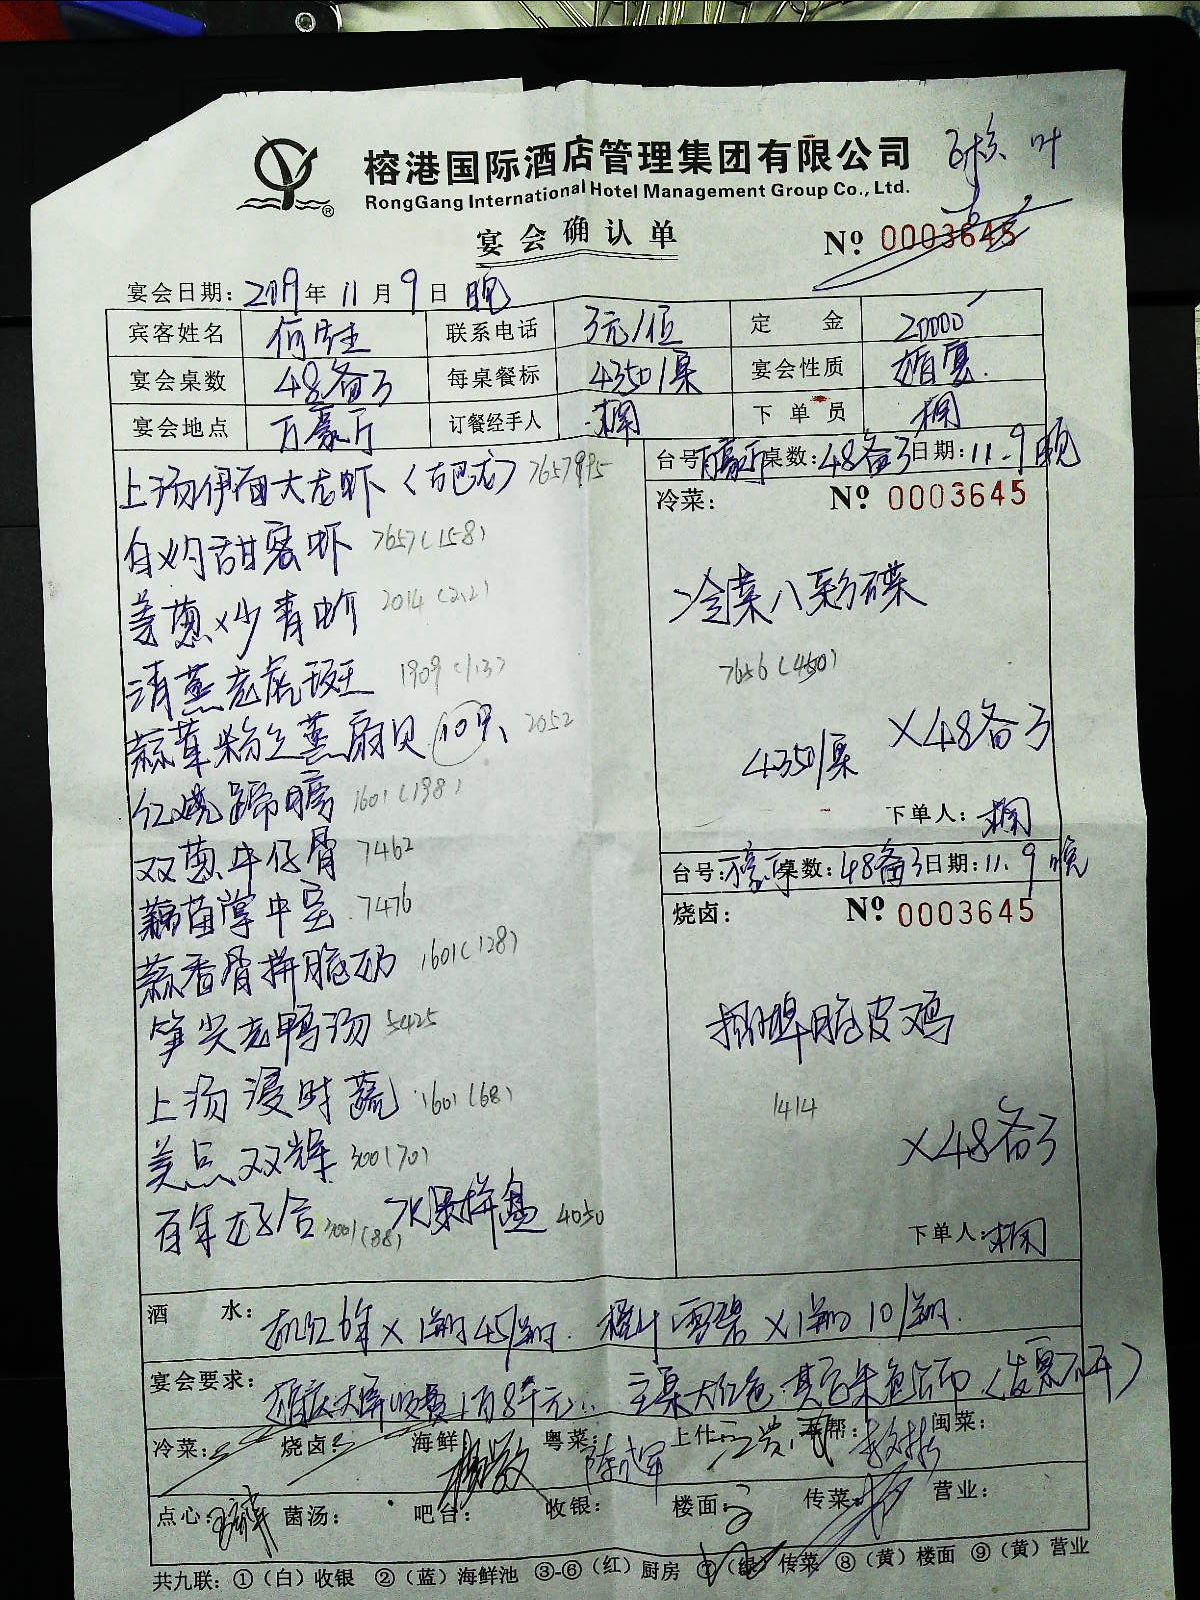 榕港国际酒店管理集团有限公司
RongGang International Hotel Management Group Co., Ltd.
宴会确认单
№ 0003645
宴会日期: 2019年11月9日 晚
宾客姓名 何先生 联系电话 3元/位 定金 20000
宴会桌数 48备3 每桌餐标 4350/桌 宴会性质 婚宴.
宴会地点 万豪厅 订餐经手人 下单员
上汤伊面大龙虾(古巴龙) 7657
台号: 万豪厅 桌数: 48备3 日期: 11.9晚
冷菜: № 0003645
白灼甜蜜虾 7657(158)
姜葱炒青蚧 2014(212)
清蒸龙虎斑 1909(113)
蒜茸粉丝蒸扇贝 10只 2052
红烧蹄膀 1601(198)
双葱牛仔骨 7462
藕苗掌中宝 7476
蒜香骨拼脆奶 1601(128)
笋尖老鸭汤 5425
上汤浸时蔬 1601(68)
美点双辉 3001(70)
百年好合 3001(88) 水果拼盘 4050
冷菜八彩碟
7656(450)
4350/桌 ×48备3
下单人:
台号: 万豪厅 桌数: 48备3 日期: 11.9晚
烧卤: № 0003645
招牌脆皮鸡
1414
×48备3
下单人:
酒水: 6年×1 45/ 橙汁 雪碧 ×1 10/
宴会要求: 婚庆大屏收费1万8千元. 主桌大红色. (发票不开)
冷菜: 烧卤: 海鲜 粤菜: 上什 帮: 闽菜:
点心: 菌汤: 吧台: 收银: 楼面 传菜: 营业:
共九联: ①(白)收银 ②(蓝)海鲜池 ③-⑥(红)厨房 ⑦(绿)传菜 ⑧(黄)楼面 ⑨(黄)营业